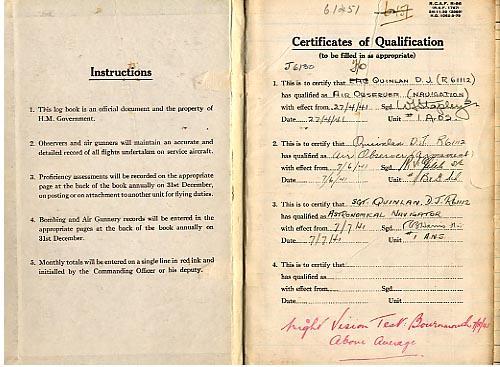 Instructions
1. This log book is an official document and the property of
H.M. Government.
2. Observers and air gunners will maintain an accurate and
detailed record of all flights undertaken on service aircraft.
3. Proficiency assessments will be recorded on the appropriate
page at the back of the book annually on 31st December,
on posting or on attachment to another unit for flying duties.
4. Bombing and Air Gunnery records will be entered in the
appropriate pages at the back of the book annually on
31st December.
5. Monthly totals will be entered on a single line in red ink and
initialled by the Commanding Officer or his deputy.
61251
R.C.A.F. R-95
Certificates of Qualification
(to be filled in as appropriate)
J6180
1. This is to certify that QUINLAN D.J. (R61112)
has qualified as AIR OBSERVER (NAVIGATION)
with effect from 27/4/41 Sgd.
Date 27/4/41 Unit #1 A.O.S.
2. This is to certify that Quinlan D.J. R61112
has qualified as Air Observer (Armament)
with effect from 7/6/41 Sgd.
Date 7/6/41 Unit #1 B&G Sch.
3. This is to certify that SGT. QUINLAN, D.J. R61112
has qualified as ASTRONOMICAL NAVIGATOR
with effect from 7/7/41 Sgd.
Date 7/7/41 Unit #1 ANS
4. This is to certify that
has qualified as
with effect from Sgd.
Date Unit
Night Vision Test: Bournemouth
Above Average